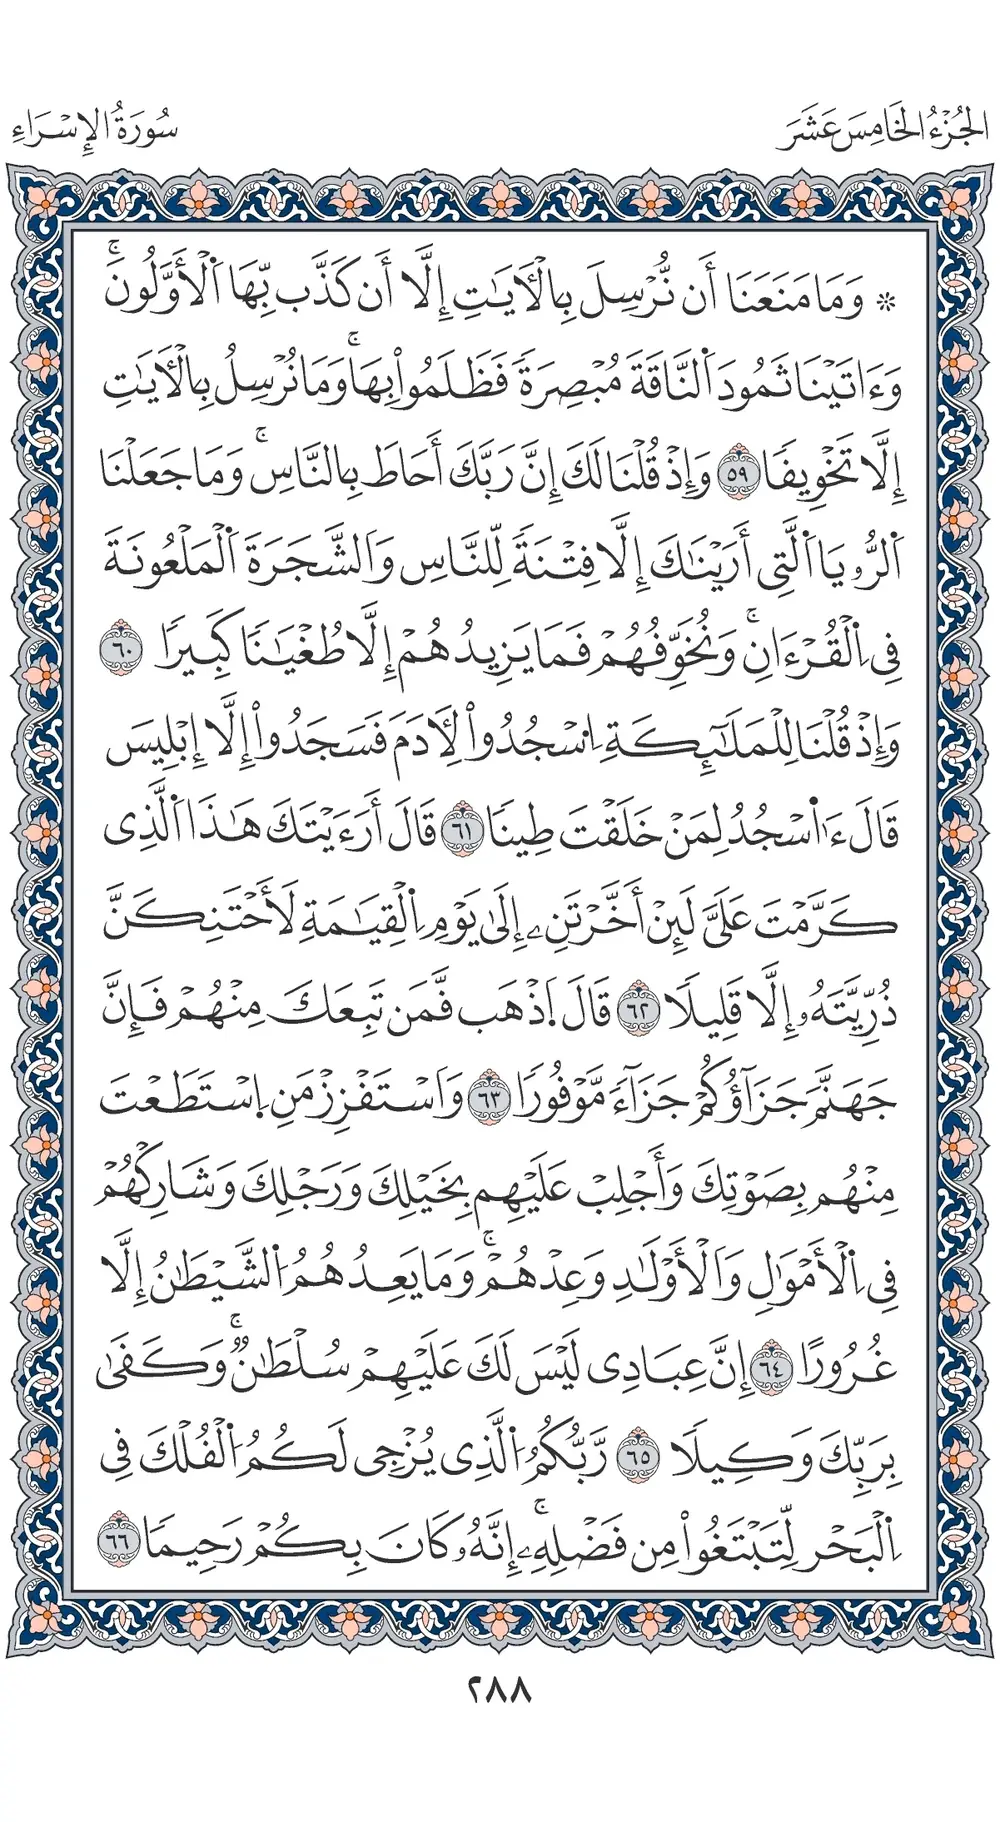 الجُزْءُ الخَامِسَ عَشَرَ
سُورَةُ الإِسْرَاءِ
۞ وَمَا مَنَعَنَا أَن نُّرْسِلَ بِالْأٓيَٰتِ إِلَّا أَن كَذَّب بِّهَا اَلْأَوَّلُونَۚ
وَءَاتَيْنَا ثَمُودَ اَلنَّاقَةَ مُبْصِرَةً فَظَلَمُواْ بِهَاۚ وَمَا نُرْسِلُ بِالْأٓيَٰتِ
إِلَّا تَخْوِيفًا ٥٩ وَإِذْ قُلْنَا لَكَ إِنَّ رَبَّكَ أَحَاطَ بِالنَّاسِۚ وَمَا جَعَلْنَا
اَلرُّءْيَا اَلَّتِي أَرَيْنَٰكَ إِلَّا فِتْنَةً لِّلنَّاسِ وَالشَّجَرَةَ اَلْمَلْعُونَةَ
فِي اِلْقُرْءَانِۚ وَنُخَوِّفُهُمْ فَمَا يَزِيدُهُمْ إِلَّا طُغْيَٰنًا كَبِيرًا ٦٠
وَإِذْ قُلْنَا لِلْمَلَٰٓئِكَةِ اِسْجُدُواْ لِأٓدَمَ فَسَجَدُواْ إِلَّا إِبْلِيسَ
قَالَ ءَا۬سْجُدُ لِمَنْ خَلَقْتَ طِينًا ٦١ قَالَ أَرَءَيْتَكَ هَٰذَا اَلَّذِي
كَرَّمْتَ عَلَيَّ لَئِنْ أَخَّرْتَنِۦ إِلَىٰ يَوْمِ اِلْقِيَٰمَةِ لَأَحْتَنِكَنَّ
ذُرِّيَّتَهُۥ إِلَّا قَلِيلًا ٦٢ قَالَ اَذْهَب فَّمَن تَبِعَكَ مِنْهُمْ فَإِنَّ
جَهَنَّمَ جَزَآؤُكُمْ جَزَآءً مَّوْفُورًا ٦٣ وَاسْتَفْزِزْ مَنِ اِسْتَطَعْتَ
مِنْهُم بِصَوْتِكَ وَأَجْلِبْ عَلَيْهِم بِخَيْلِكَ وَرَجْلِكَ وَشَارِكْهُمْ
فِي اِلْأَمْوَٰلِ وَالْأَوْلَٰدِ وَعِدْهُمْۚ وَمَا يَعِدُهُمُ اُلشَّيْطَٰنُ إِلَّا
غُرُورًا ٦٤ إِنَّ عِبَادِي لَيْسَ لَكَ عَلَيْهِمْ سُلْطَٰنٌۚ وَكَفَىٰ
بِرَبِّكَ وَكِيلًا ٦٥ رَّبُّكُمُ اُلَّذِي يُزْجِي لَكُمُ اُلْفُلْكَ فِي
اِلْبَحْرِ لِّتَبْتَغُواْ مِن فَضْلِهِۦۚ إِنَّهُۥ كَانَ بِكُمْ رَحِيمًا ٦٦
٢٨٨